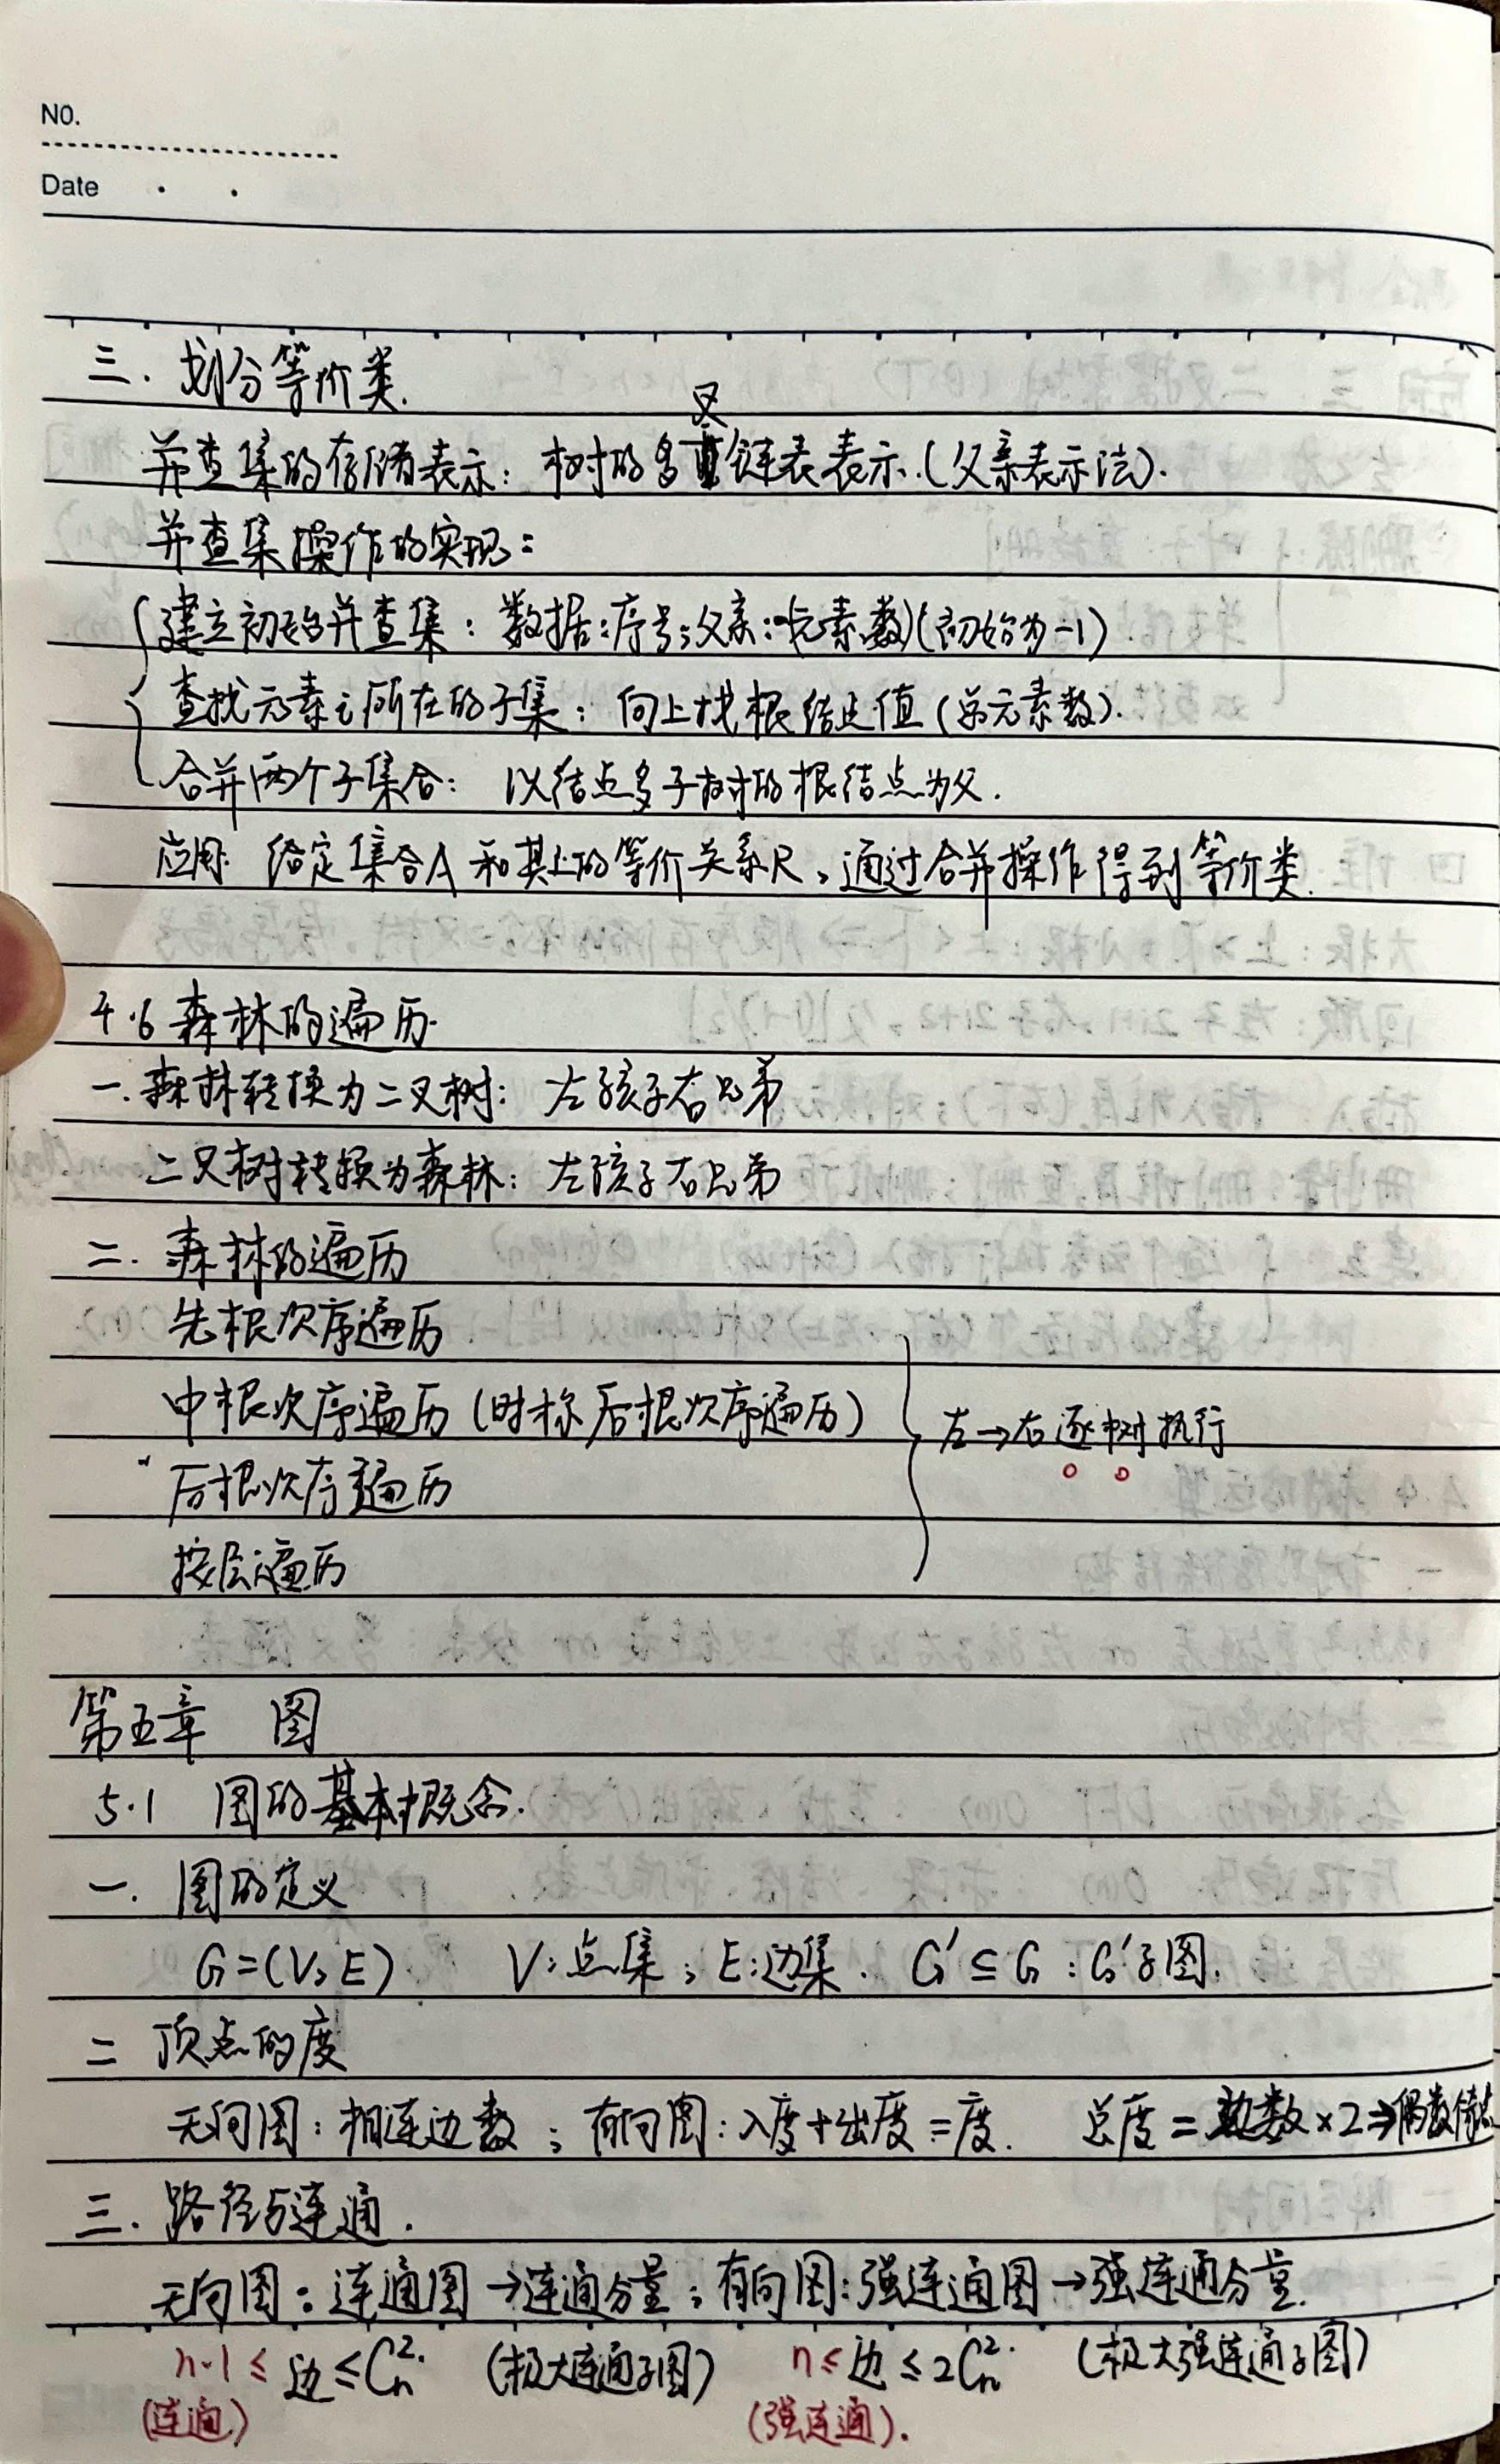 NO.
Date
三. 划分等价类.
并查集的存储表示: 树的多叉链表表示.(父亲表示法).
并查集操作的实现:
建立初始并查集: 数据:序号;父亲:-(元素数)(初始为-1)
查找元素i所在的子集: 向上找根结点值(总元素数).
合并两个子集合: 以结点多子树的根结点为父.
应用: 给定集合A和其上的等价关系R,通过合并操作得到等价类.
4.6 森林的遍历.
一.森林转换为二叉树: 左孩子右兄弟
二叉树转换为森林: 左孩子右兄弟
二. 森林的遍历
先根次序遍历
中根次序遍历(时称后根次序遍历)
左→右逐树执行
后根次序遍历
按层遍历
第五章 图
5.1 图的基本概念.
一. 图的定义
G=(V,E) V:点集; E:边集. G'⊆G:G'子图.
二 顶点的度
无向图: 相连边数; 有向图: 入度+出度=度. 总度=边数×2⇒偶数
三. 路径与连通.
无向图: 连通图→连通分量; 有向图:强连通图→强连通分量.
n-1≤边≤Cn². (极大连通子图) n≤边≤2Cn². (极大强连通子图)
(连通) (强连通).